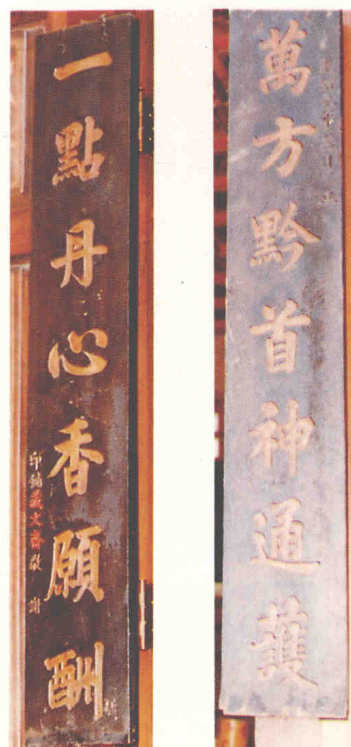 萬方黔首神通護
一點丹心香願酬
印鋪藏文齋敬謝